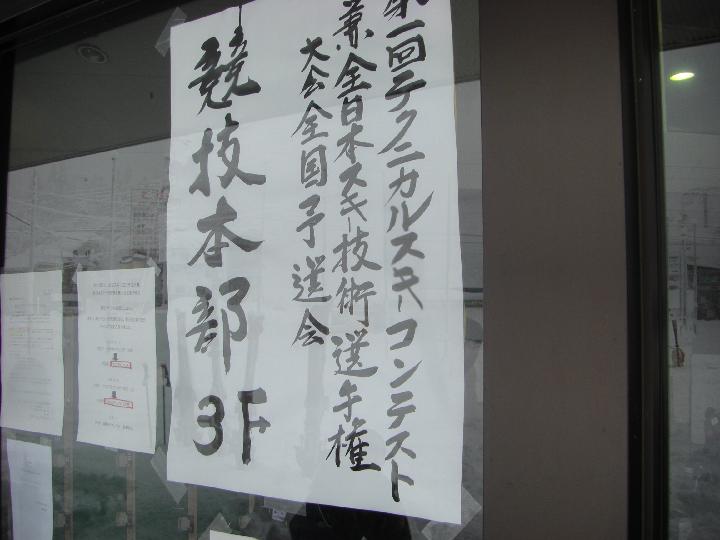 第一回テクニカルスキーコンテスト
兼全日本スキー技術選手権
大会全国予選会
競技本部 3F